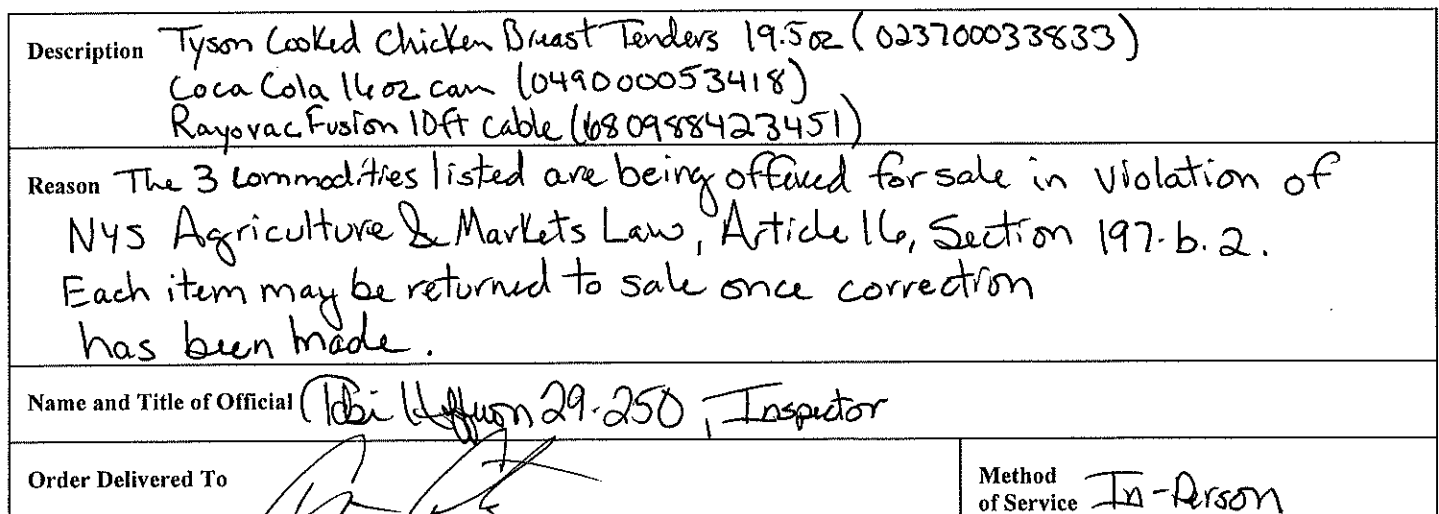 Description Tyson Cooked Chicken Breast Tenders 19.5oz (023700033833)
Coca Cola 16oz can (049000053418)
Rayovac Fusion 10ft cable (680988423451)
Reason The 3 commodities listed are being offered for sale in violation of
NYS Agriculture & Markets Law, Article 16, Section 197-b.2.
Each item may be returned to sale once correction
has been made.
Name and Title of Official 29-250, Inspector
Order Delivered To
Method
of Service In-Person